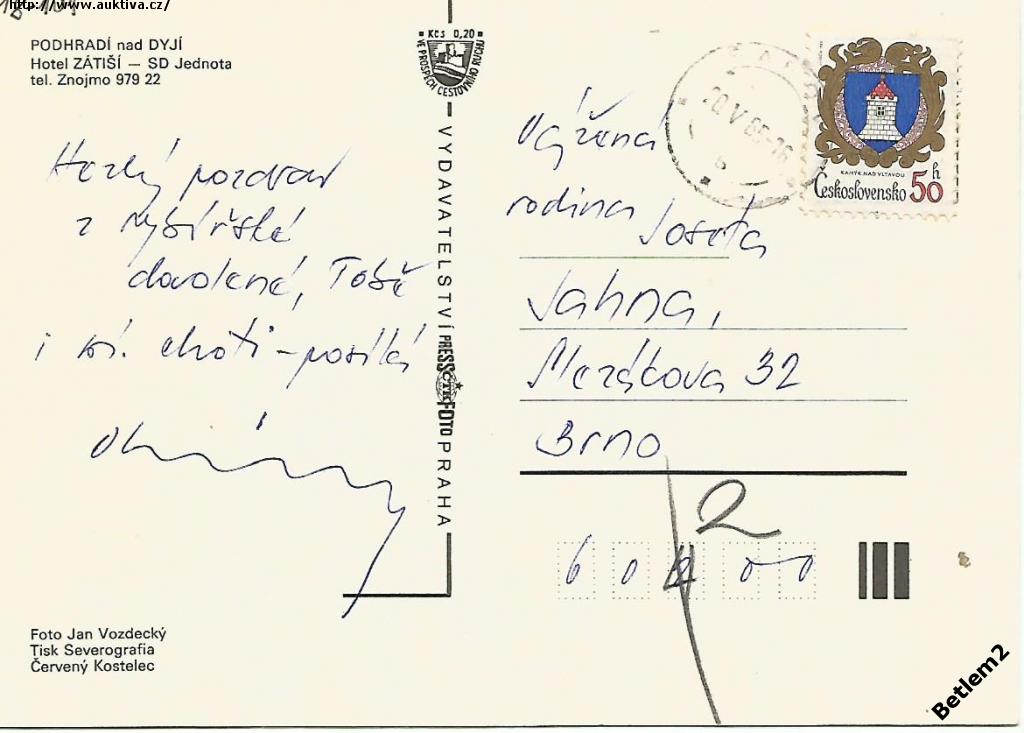 http://www.auktiva.cz/
PODHRADÍ nad DYJÍ
Hotel ZÁTIŠÍ — SD Jednota
tel. Znojmo 979 22
Kčs 0,20
VE PROSPĚCH CESTOVNÍHO RUCHU
Hezký pozdrav
z rybářské
dovolené, Tobě
i choti - posílá
VYDAVATELSTVÍ PRESSFOTO PRAHA
ČTK
Vážená
rodina Josefa
Jahna,
32
Brno
2
60 00
20.V.85-16
KAMÝK NAD VLTAVOU
Československo 50 h
Foto Jan Vozdecký
Tisk Severografia
Červený Kostelec
Betlem2